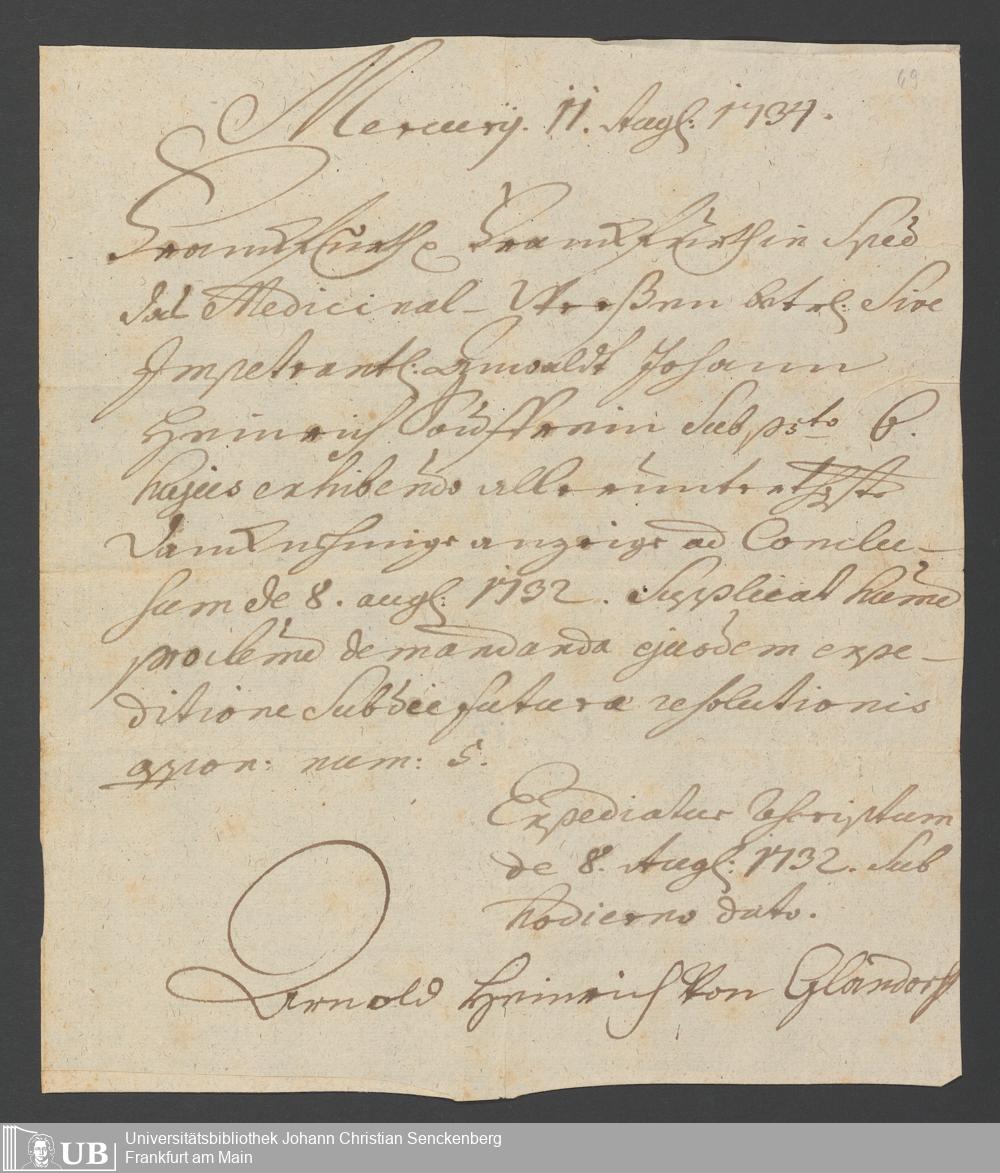 69
Mercurij. 11. Augl: 1734.
Franckfurth c Franckfurth in Spec
das Medicinal-Weeßen betrl: Sive
Impetrantl: Anwaldt Johann
Heinrich Sub psto 6.
hujus exhibendo allerunterthgste
Dancknehmige anzeige ad Conclu-
sum de 8. augl: 1732. Supplicat hume
pro clemd demandanda ejusdem expe-
ditione Sub die futuræ resolutionis
appon: num: 5.
Expediatur Rescriptum
de 8. Augl: 1732. Sub
hodierno dato.
Arnold Heinrich Von Glandorff
UB
Universitätsbibliothek Johann Christian Senckenberg
Frankfurt am Main